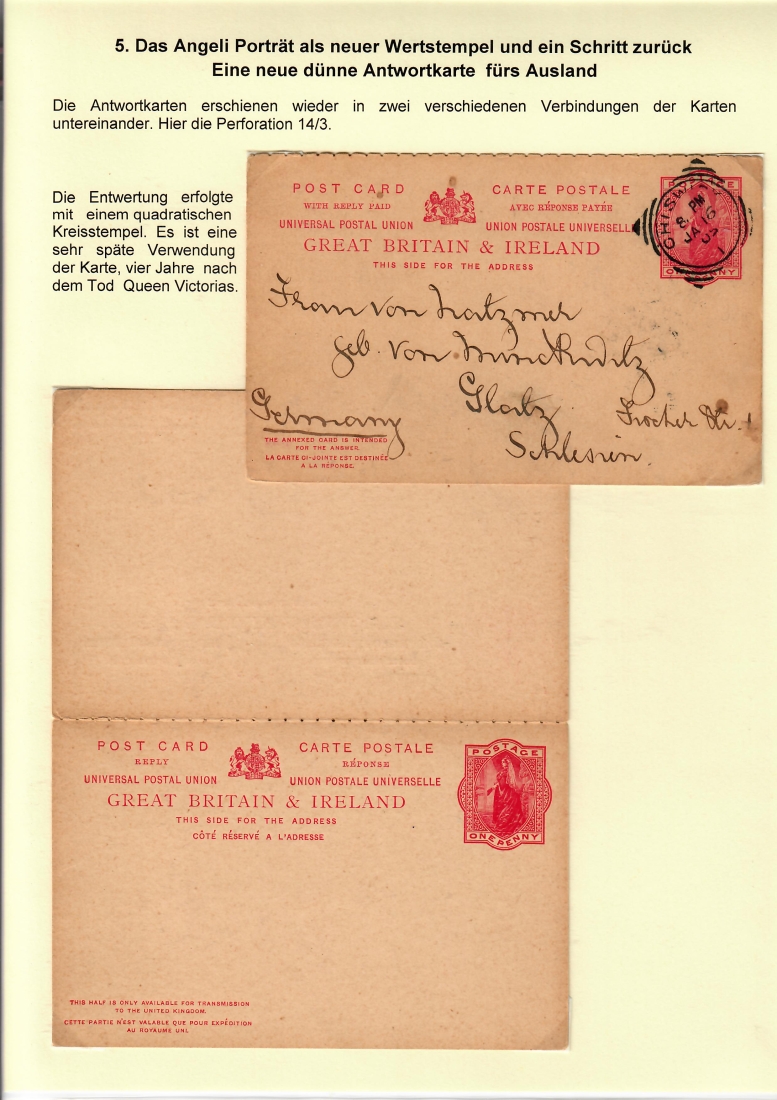 5. Das Angeli Porträt als neuer Wertstempel und ein Schritt zurück
Eine neue dünne Antwortkarte fürs Ausland
Die Antwortkarten erschienen wieder in zwei verschiedenen Verbindungen der Karten
untereinander. Hier die Perforation 14/3.
Die Entwertung erfolgte
mit einem quadratischen
Kreisstempel. Es ist eine
sehr späte Verwendung
der Karte, vier Jahre nach
dem Tod Queen Victorias.
POST CARD CARTE POSTALE
WITH REPLY PAID AVEC RÉPONSE PAYÉE
UNIVERSAL POSTAL UNION UNION POSTALE UNIVERSELLE
GREAT BRITAIN & IRELAND
THIS SIDE FOR THE ADDRESS
CHISWICK
8 PM
JA 16
Frau von
geb. von
Glatz
Germany
Schlesien.
THE ANNEXED CARD IS INTENDED
FOR THE ANSWER.
LA CARTE CI-JOINTE EST DESTINÉE
A LA RÉPONSE.
POST CARD CARTE POSTALE
REPLY RÉPONSE
UNIVERSAL POSTAL UNION UNION POSTALE UNIVERSELLE
GREAT BRITAIN & IRELAND
THIS SIDE FOR THE ADDRESS
CÔTÉ RÉSERVÉ A L'ADRESSE
POSTAGE
ONE PENNY
THIS HALF IS ONLY AVAILABLE FOR TRANSMISSION
TO THE UNITED KINGDOM.
CETTE PARTIE N'EST VALABLE QUE POUR EXPÉDITION
AU ROYAUME UNI.